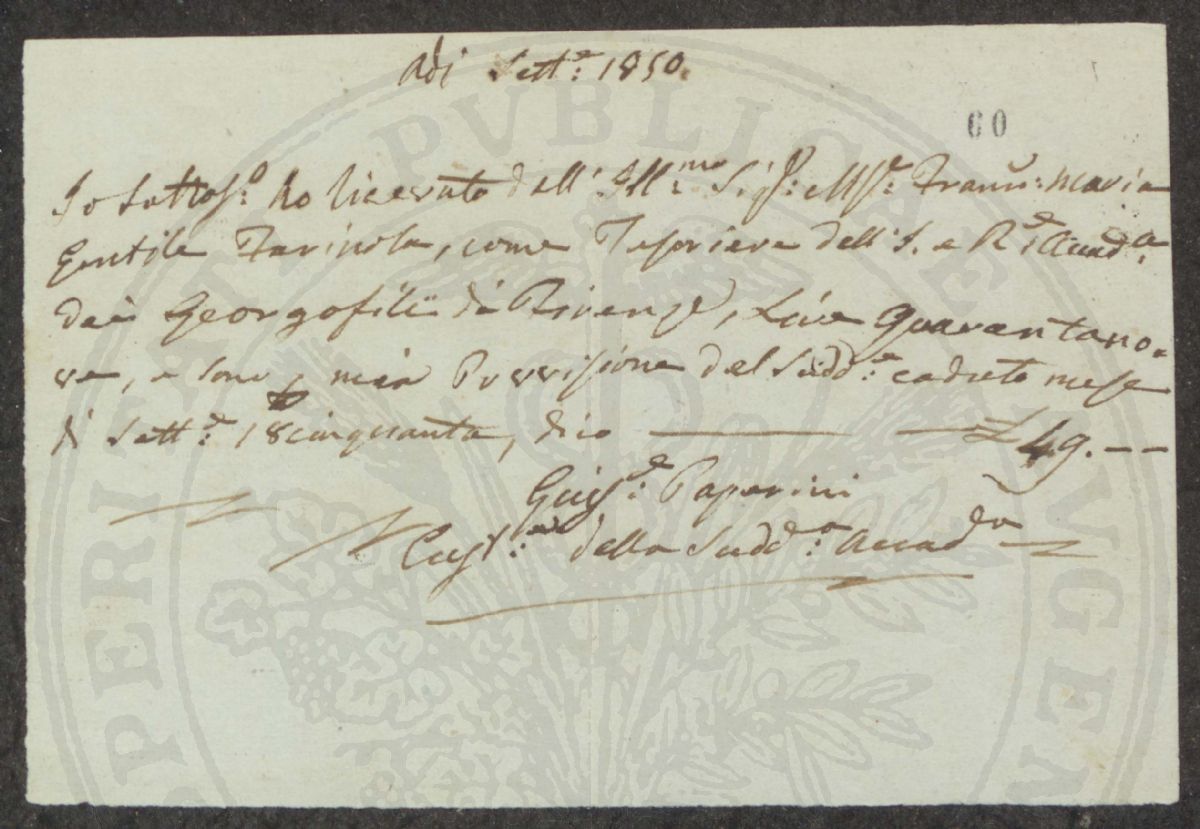 Adì Sett.e 1850.
60
Io Sottos.o ho Ricevuto dall' Ill.mo Sig.r M.se Franc.o Maria
Gentile Farinola, come Tesoriere dell' I. e R.e Accad.a
dei Georgofili di Firenze, Lire Quarantano=
ve, e sono p mia Provvisione del Sudd.o caduto mese
di Sett.e 18cinquanta, dico £ 49.--
Gius.e Paperini
Cust.e della Sudd.a Accad.a
PUBLICAE
PROSPERITATI
AUGENDAE